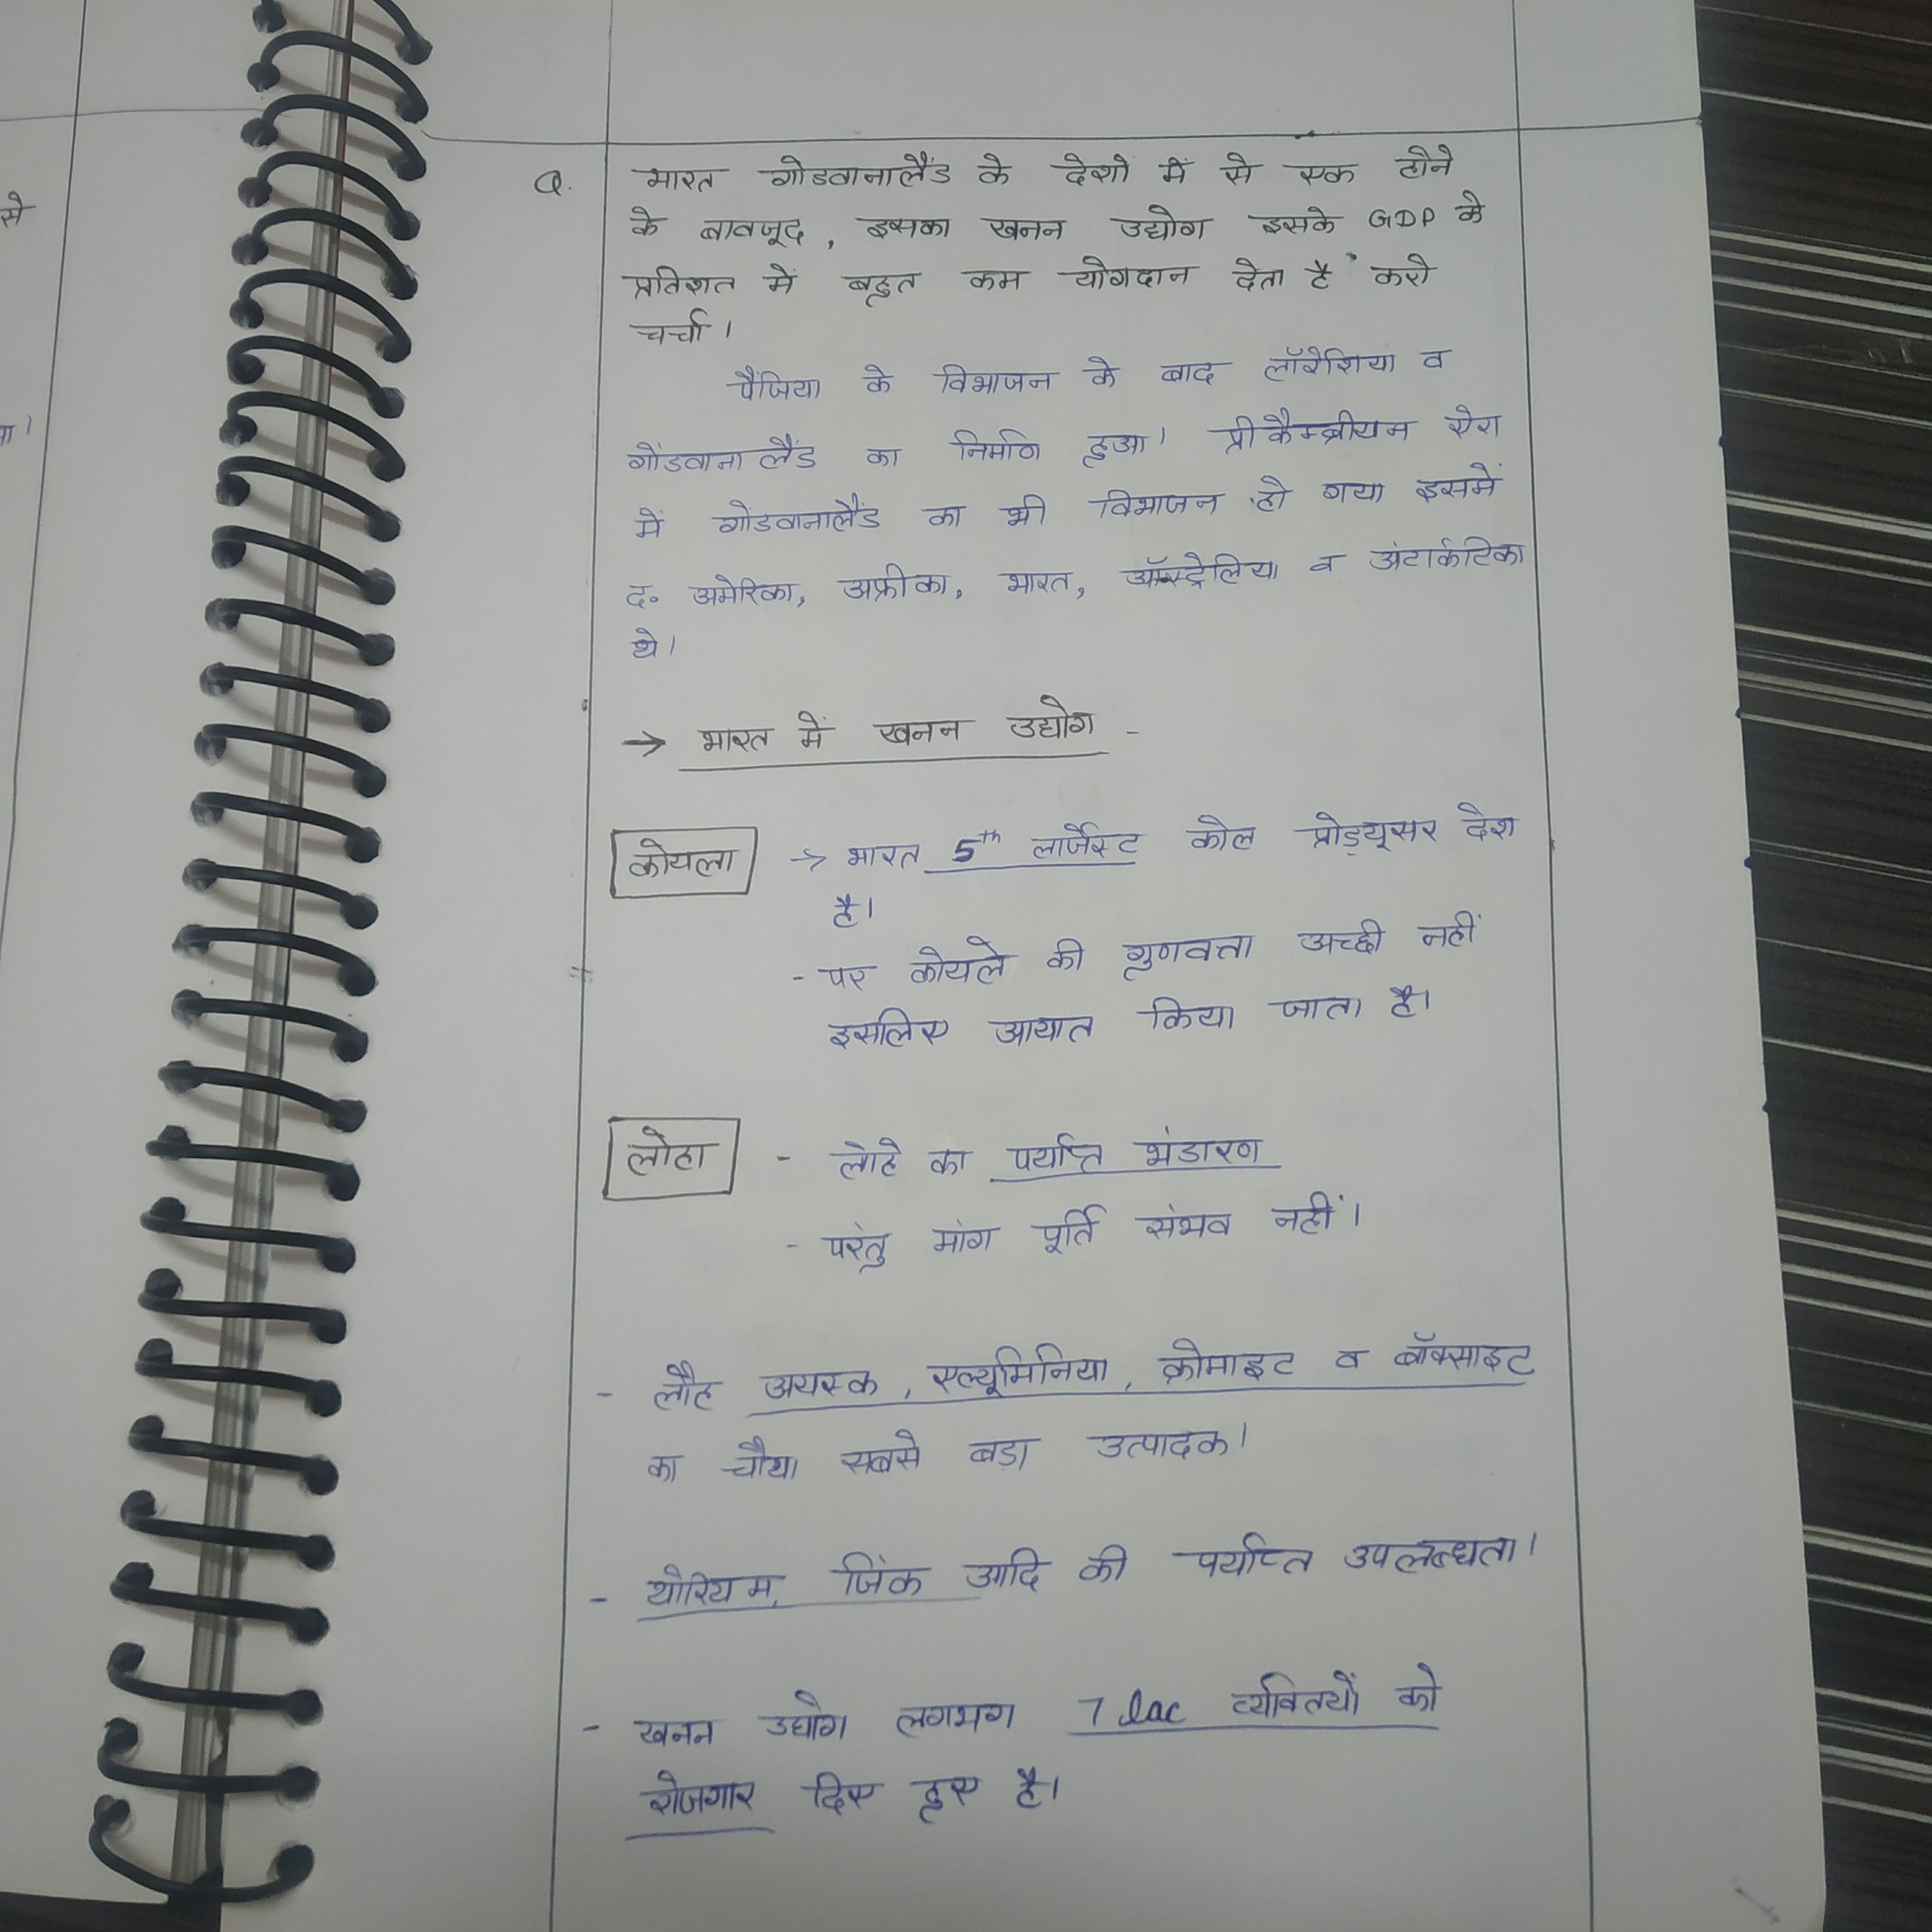 से
या।
Q. भारत गोंडवानालैंड के देशों में से एक होने
के बावजूद, इसका खनन उद्योग इसके GDP के
प्रतिशत में बहुत कम योगदान देता है करो
चर्चा।
पैंजिया के विभाजन के बाद लॉरेशिया व
गोंडवाना लैंड का निर्माण हुआ। प्रीकैम्ब्रीयन ऐरा
में गोंडवानालैंड का भी विभाजन हो गया इसमें
द॰ अमेरिका, अफ्रीका, भारत, ऑस्ट्रेलिया व अंटार्कटिका
थे।
→ भारत में खनन उद्योग -
कोयला → भारत 5th लार्जेस्ट कोल प्रोड्यूसर देश
है।
- पर कोयले की गुणवत्ता अच्छी नहीं
इसलिए आयात किया जाता है।
लोहा - लोहे का पर्याप्त भंडारण
- परंतु मांग पूर्ति संभव नहीं।
- लौह अयस्क, एल्यूमिनिया, क्रोमाइट व बॉक्साइट
का चौथा सबसे बड़ा उत्पादक।
- थोरियम, जिंक आदि की पर्याप्त उपलब्धता।
- खनन उद्योग लगभग 7 lac व्यक्तियों को
रोजगार दिए हुए है।